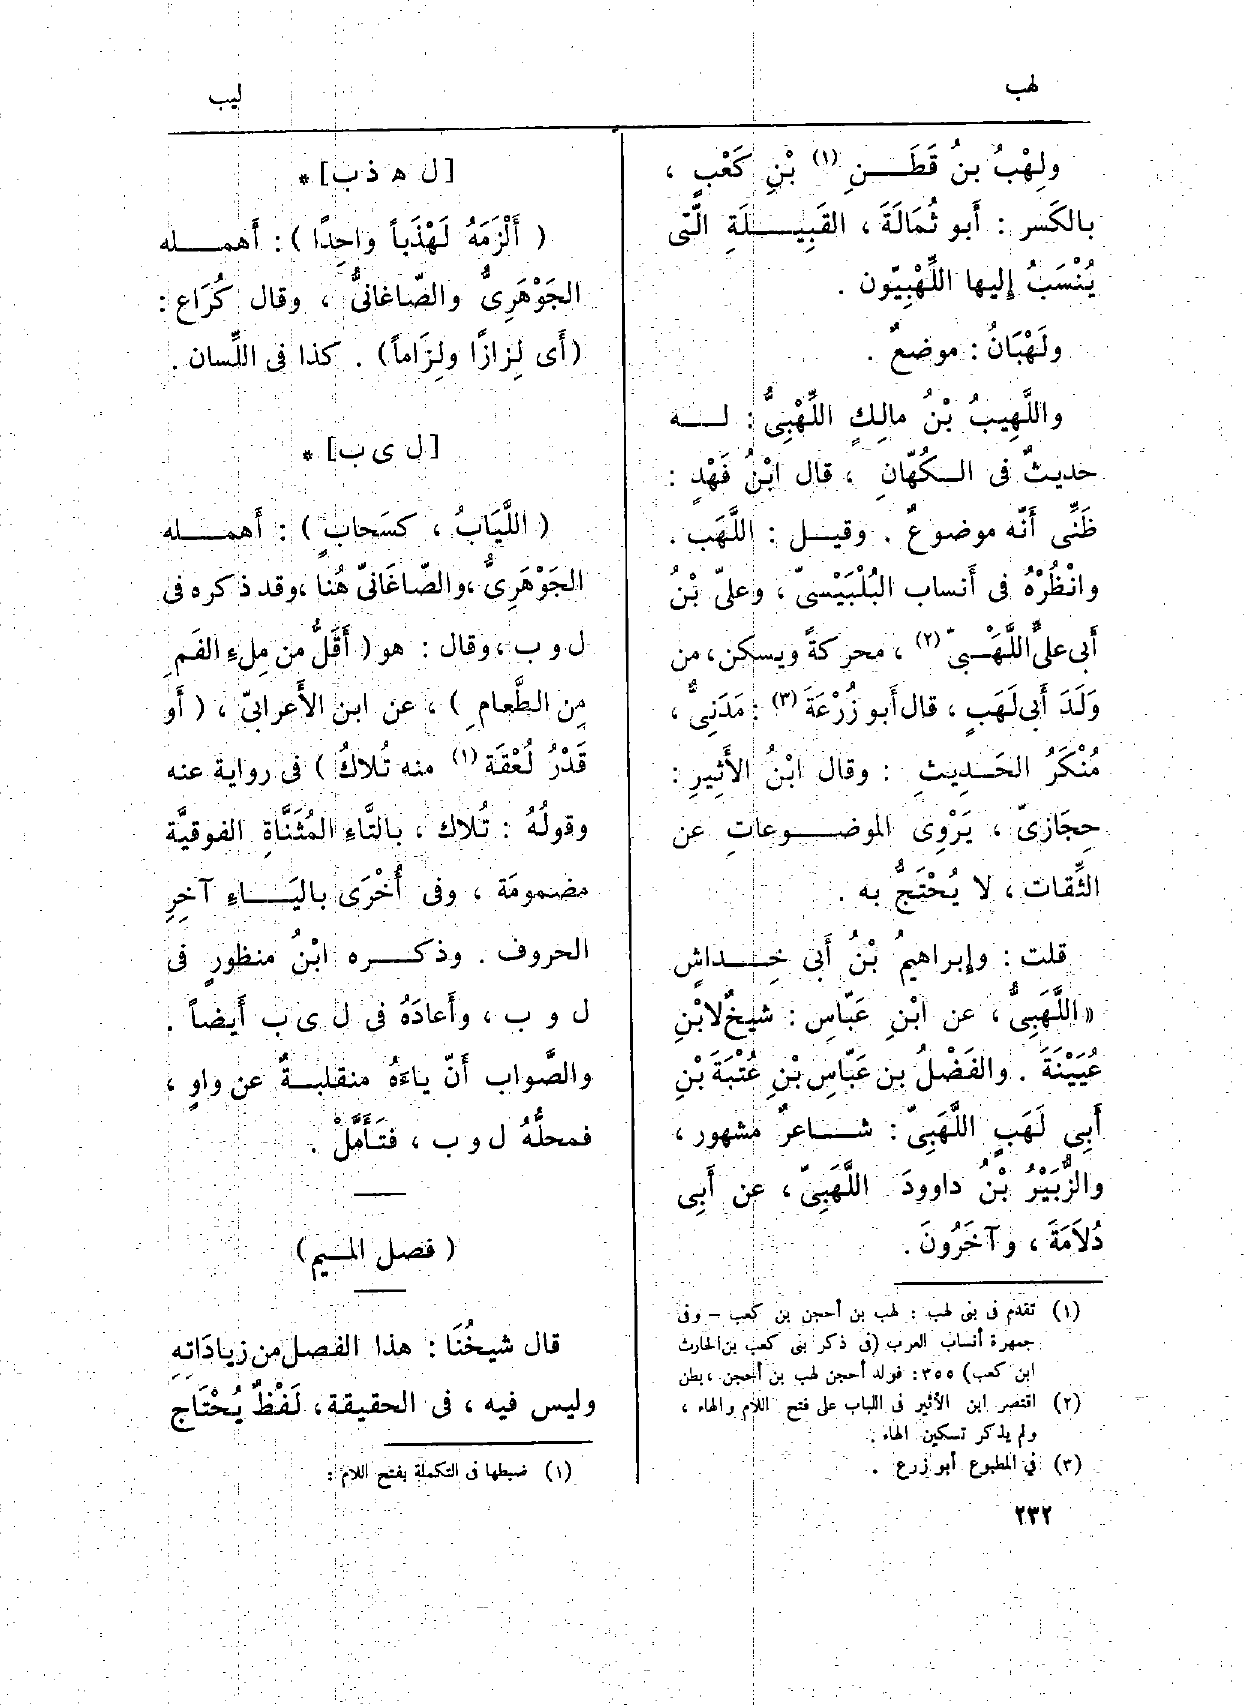 لهب
ليب
ولِهْبُ بنُ قَطَــنِ (١) بْنِ كَعْبٍ ،
بالكَسر : أَبو ثُمَالَةَ ، القَبِيــلَةِ الَّتى
يُنْسَبُ إليها اللِّهْبِيّون .
ولَهْبَانُ : موضعٌ .
واللَّهِيبُ بْنُ مالِكٍ اللِّهْبِىُّ : لــه
حديثٌ فى الـكُهّانِ ، قال ابْنُ فَهْدٍ :
ظَنِّى أَنّه موضوعٌ . وقيــل : اللَّهَب .
وانْظُرْهُ فى أَنساب البُلْبَيْسىّ ، وعلىّ بْنُ
أَبى علىٍّ اللَّهْــبىّ (٢) ، محركةً ويسكن ، من
وَلَدَ أَبى لَهَبٍ ، قال أَبو زُرْعَةَ (٣) : مَدَنِىٌّ ،
مُنْكَرُ الحَــدِيثِ : وقال ابْنُ الأَثِيرِ :
حِجَازىّ ، يَرْوِى الموضــوعاتِ عن
الثِّقات ، لا يُحْتَجُّ به .
قلت : وإبراهيمُ بْنُ أَبى خِــداشٍ
«اللَّهَبِىُّ ، عن ابْنِ عَبّاسٍ : شيخٌ لابْنِ
عُيَيْنَةَ . والفَضْلُ بن عَبّاسِ بْنِ عُتْبَةَ بْنِ
أَبِي لَهَبٍ اللَّهَبِىّ : شــاعرٌ مشهور ،
والزُّبَيْرُ بْنُ داوودَ اللَّهَبِىّ ، عن أَبِى
دُلاَمَةَ ، وآخَرُونَ .
(١) تقدم فى بنى لهب : لهب بن أحجن بن كعب – وفى
جمهرة أنساب العرب (فى ذكر بنى كعب بن الحارث
ابن كعب) ٣٥٥ : فولد أحجن لهب بن أحجن ، بطن
(٢) اقتصر ابن الأثير فى اللباب على فتح اللام والهاء ،
ولم يذكر تسكين الهاء .
(٣) في المطبوع أبو زرع .
[ل ه ذ ب] *
( أَلْزَمَهُ لَهْذَباً واحِدًا ) : أَهمــله
الجَوْهَرِىُّ والصّاغانىُّ ، وقال كُرَاع :
(أَى لِزازًا ولِزَاماً) . كذا فى اللِّسان .
[ل ى ب] *
( اللَّيَابُ ، كسَحابٍ ) : أَهمــله
الجَوْهَرِىُّ ،والصّاغَانىّ هُنا ،وقد ذكره فى
ل و ب ، وقال : هو ( أَقَلُّ من مِلءِ الفَمِ
مِن الطَّعامِ ) ، عن ابن الأَعرابىّ ، ( أَو
قَدْرُ لُعْقَة (١) منه تُلاكُ ) فى رواية عنه
وقولُهُ : تُلاك ، بالتَّاءِ المُثَنَّاةِ الفوقيَّة
مضمومَة ، وفى أُخْرَى باليَــاءِ آخِرِ
الحروف . وذكــره ابْنُ منظورٍ فى
ل و ب ، وأَعادَهُ فى ل ى ب أَيضاً .
والصَّواب أَنّ ياءَهُ منقلبــةٌ عن واوٍ ،
فمحلُّهُ ل و ب ، فتَأَمَّلْ .
( فصل المــيم)
قال شيخُنَا : هذا الفصل من زيادَاتِهِ
وليس فيه ، فى الحقيقة ، لَفْظٌ يُحْتَاج
(١) ضبطها فى التكملة بفتح اللام :
٢٣٢